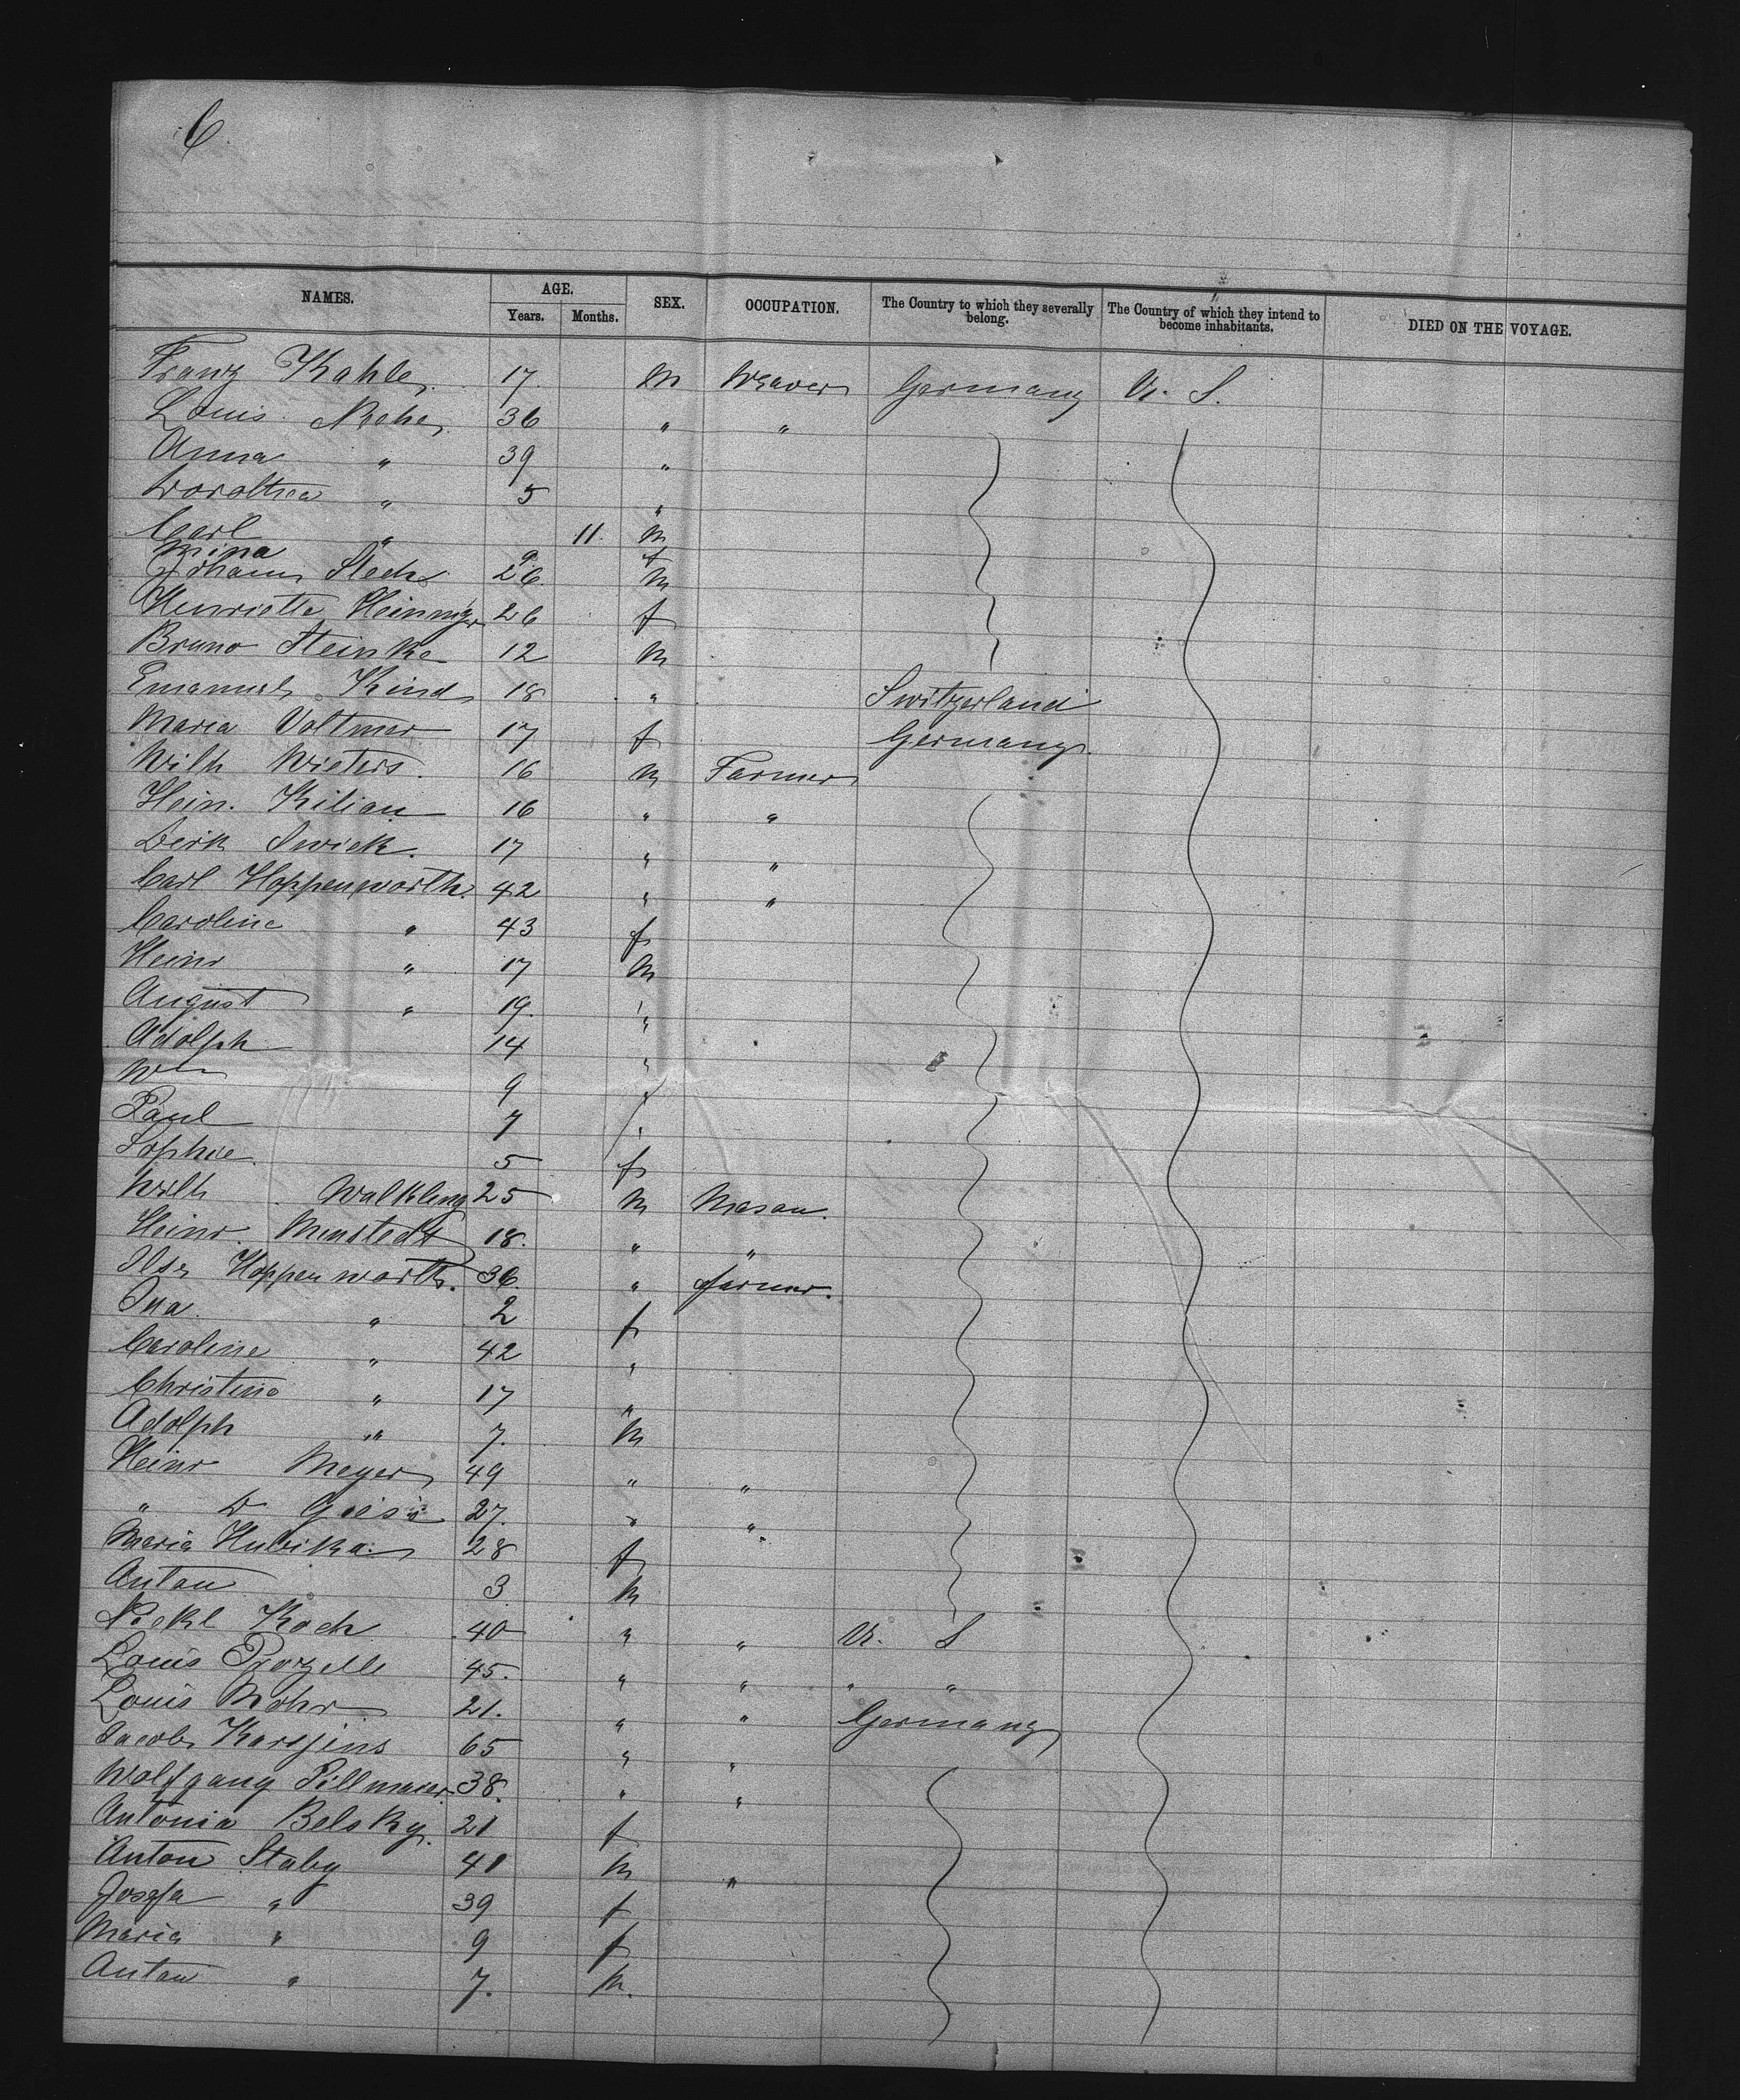 6
NAMES. AGE. SEX. OCCUPATION. The Country to which they severally belong. The Country of which they intend to become inhabitants. DIED ON THE VOYAGE.
Years. Months.
Franz Kahle 17. m Weaver Germany U. S.
Louis Nehe 36 " "
Anna " 39 "
Dorothea " 5 "
Carl " 11. m
Mina 9 f
Johann Stech 26. m
Henriette 26 f
Bruno Steinke 12 m
Emanuel Kind 18 " Switzerland
Maria Voltmer 17 f Germany
Wilh Wieters. 16 m Farmer
Hein. Kilian 16 " "
Dirk Swick. 17 " "
Carl Hoppenworth. 42 " "
Caroline " 43 f
Heinr " 17 m
August " 19. "
Adolph 14 "
Wm 9 "
Paul 7 "
Sophie 5 f
Wilh Walkling 25 m Mason.
Heinr. Minstedt 18. " "
Ilse Hoppenworth. 36 " farmer.
Ina " 2 f
Caroline " 42 "
Christine " 17 "
Adolph " 7. m
Heinr Meyer 49 " "
" D 27. " "
Maria Hubika 28 f
Anton 3. m
Koch 40 " " U. S
Louis Prozelle 45. " " " "
Louis Mohr 21. " " Germany
Jacob Karsjens 65 " "
Wolfgang Pillmaier 38. " "
Antonia Belsky. 21 f
Anton Staby 41 m "
Josefa " 39 f
Maria " 9 f
Anton " 7. m.